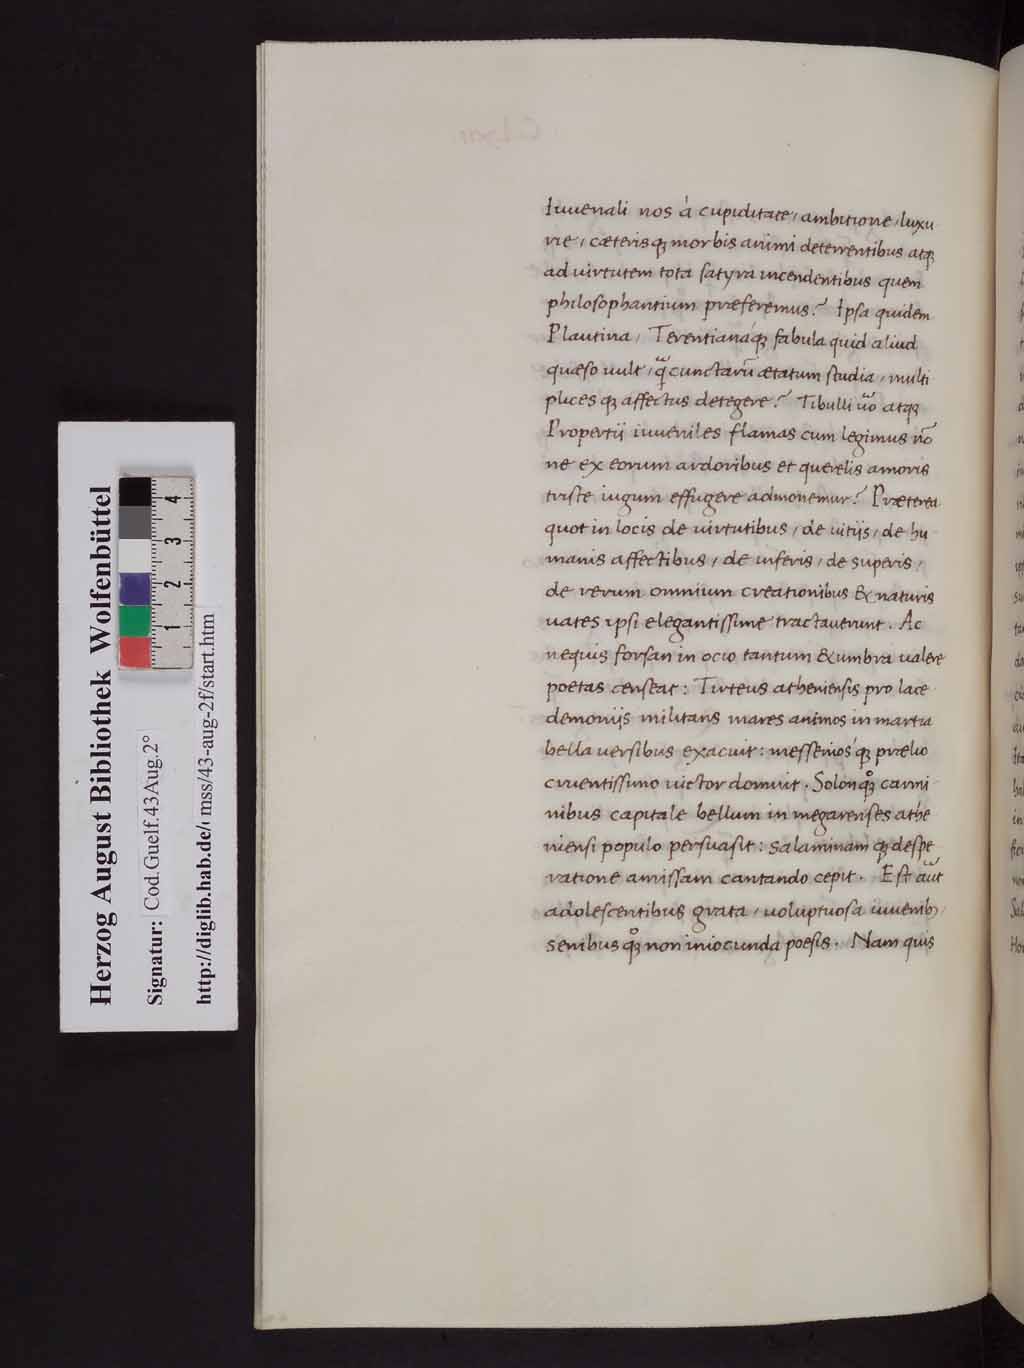 Iuuenali nos á cupiditate, ambitione, luxu
rie, cæterisq; morbis animi deterrentibus atq;
ad uirtutem tota satyra incendentibus quem
philosophantium præferemus? Ipsa quidem
Plautina, Terentianáq; fabula quid aliud
quæso uult, q̃ cunctarũ ætatum studia, multi
plices q; affectus detegere? Tibulli ũo atq;
Propertij iuueniles flamas cum legimus nõ
ne ex eorum ardoribus et querelis amoris
triste iugum effugere admonemur? Præterea
quot in locis de uirtutibus, de uitijs, de hu
manis affectibus, de inferis, de superis,
de rerum omnium creationibus & naturis
uates ipsi elegantissime tractauerunt. Ac
nequis forsan in ocio tantum & umbra ualere
poetas censeat: Tirteus atheniensis pro lace
demonijs militans mares animos in martia
bella uersibus exacuit: messenios q; prælio
cruentissimo uictor domuit. Solonq; carmi
nibus capitale bellum in megarenses athe
niensi populo persuasit: salaminam q; despe
ratione amissam cantando cepit. Est aũt
adolescentibus grata, uoluptuosa iuuenib;,
senibus q; non iniocunda poesis. Nam quis
Herzog August Bibliothek Wolfenbüttel
Signatur: Cod.Guelf.43Aug.2°
http://diglib.hab.de/ mss/43-aug-2f/start.htm
1 2 3 4